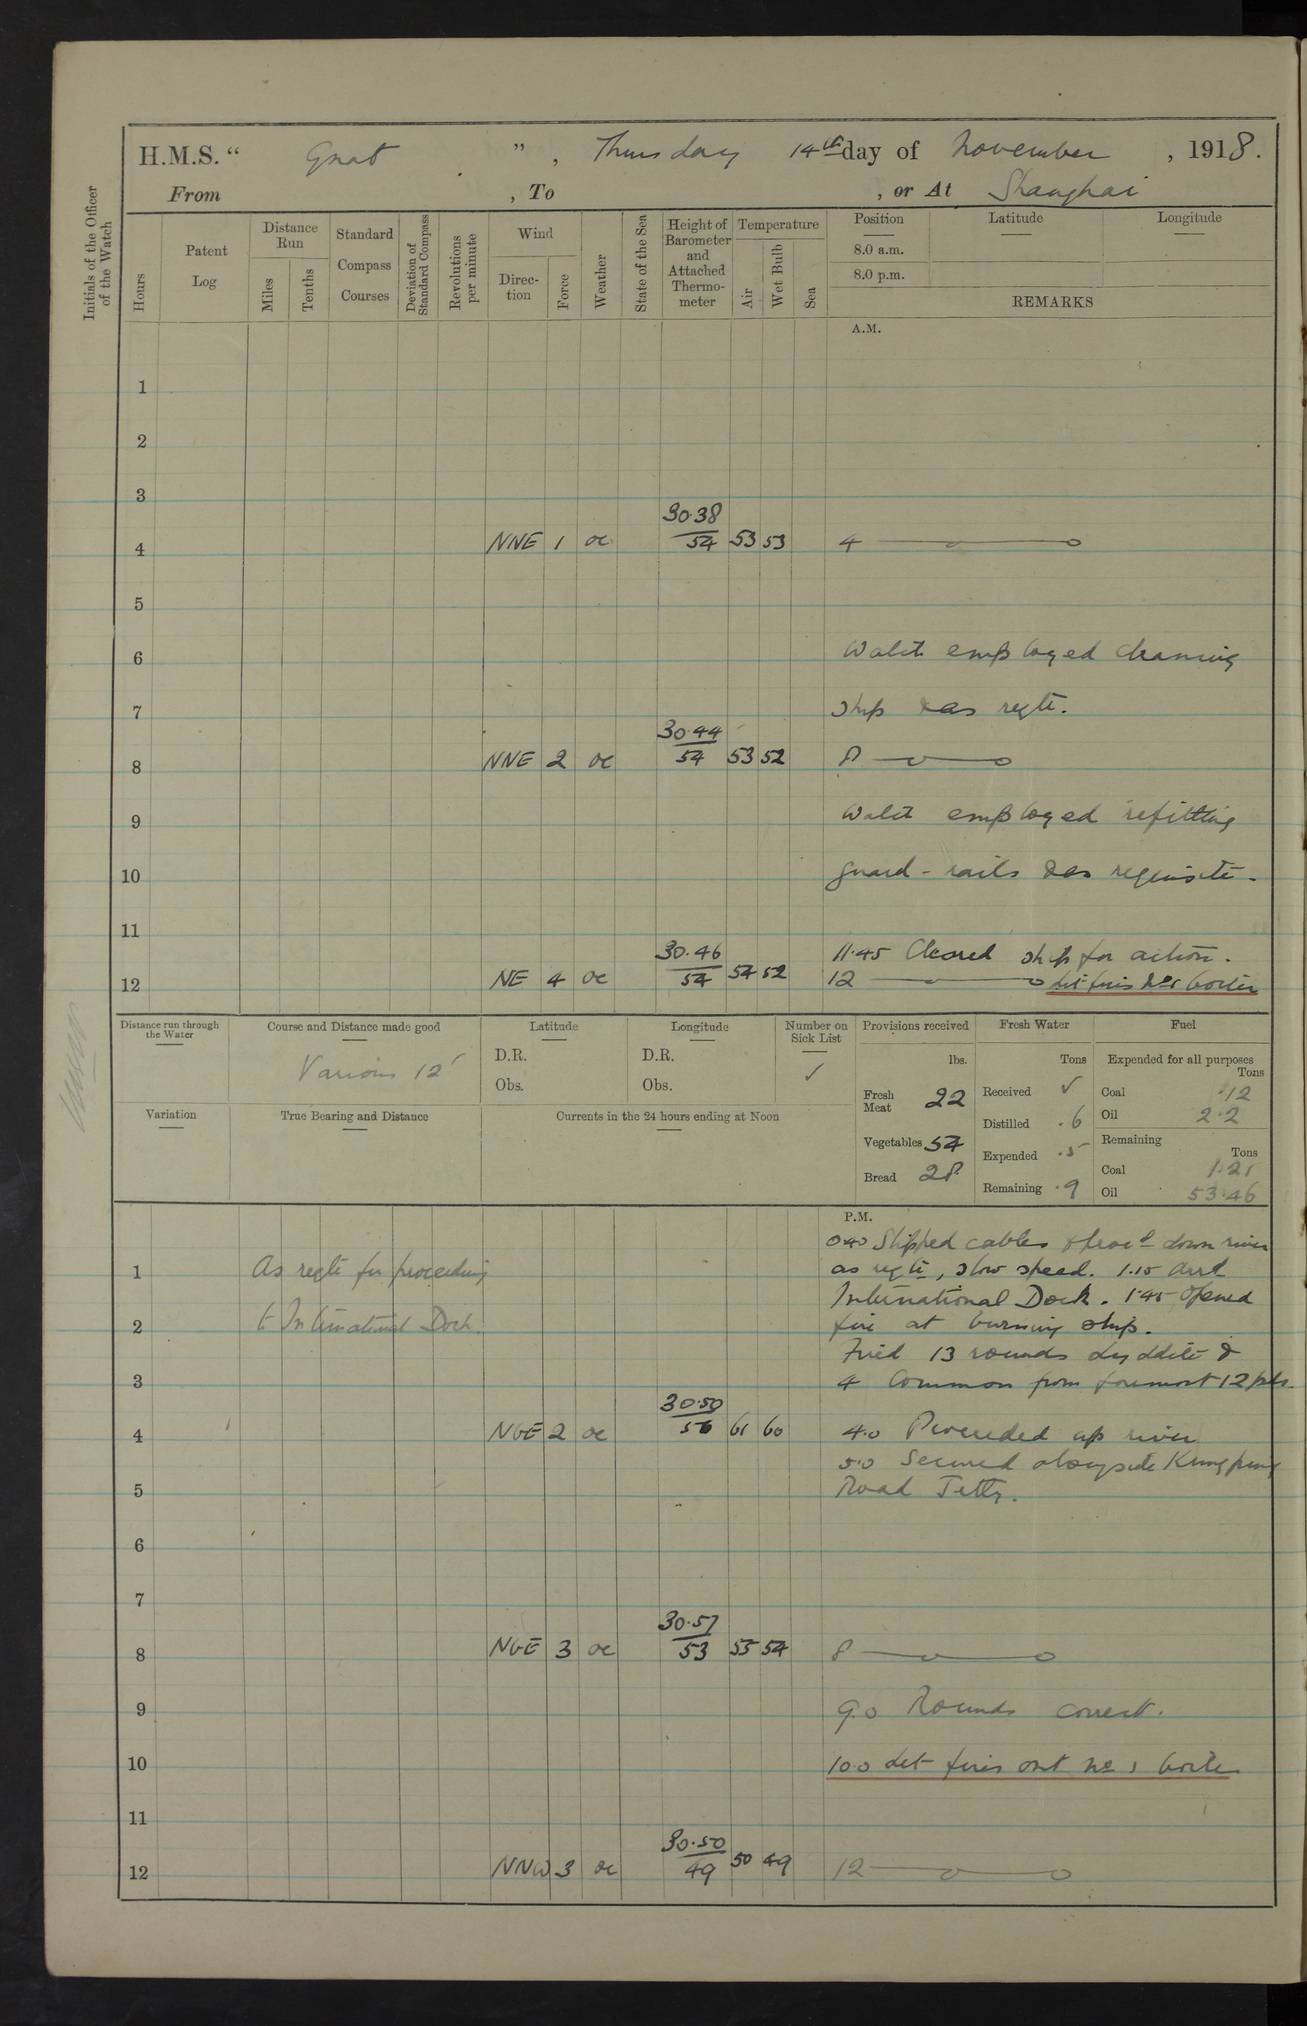 H.M.S. “ Gnat ” , Thursday 14th day of November , 1918.
From , To , or At Shanghai
Initials of the Officer of the Watch
Hours
Patent Log
Distance Run
Miles
Tenths
Standard Compass Courses
Deviation of Standard Compass
Revolutions per minute
Wind
Direction
Force
Weather
State of the Sea
Height of Barometer and Attached Thermometer
Temperature
Air
Wet Bulb
Sea
Position Latitude Longitude
8.0 a.m.
8.0 p.m.
REMARKS
A.M.
1
2
3
30.38
4 NNE 1 oc 54 53 53 4
5
6 Watch employed cleaning
7 ship & as reqte.
30.44
8 NNE 2 oc 54 53 52 8
9 Watch employed refitting
10 guard-rails & as requisite.
11 11.45 Cleared ship for action.
30.46
12 NE 4 oc 54 54 52 12 Lit fires No 1 boiler
Distance run through the Water
Course and Distance made good
Various 12'
Latitude
D.R.
Obs.
Longitude
D.R.
Obs.
Number on Sick List
✓
Provisions received
lbs.
Fresh Meat 22
Vegetables 54
Bread 28
Fresh Water
Tons
Received ✓
Distilled .6
Expended .5
Remaining .9
Fuel
Expended for all purposes
Tons
Coal .12
Oil 2.2
Remaining
Tons
Coal 1.25
Oil 53.46
Variation
True Bearing and Distance
Currents in the 24 hours ending at Noon
P.M.
0.40 Slipped cables & procd down river
1 As reqte for proceeding as reqte, slow speed. 1.15 Arrd
International Dock. 1.45 Opened
2 to International Dock. fire at burning ship.
Fired 13 rounds Lyddite &
3 4 Common from foremost 12 pdr.
30.50
4 NbE 2 oc 56 61 60 4.0 Proceeded up river
5.0 Secured alongside Kungping
5 Road Jetty.
6
7
30.57
8 NbE 3 oc 53 55 54 8
9 9.0 Rounds correct.
10 10.0 Let fires out No 1 boiler
11
30.50
12 NNW 3 oc 49 50 49 12